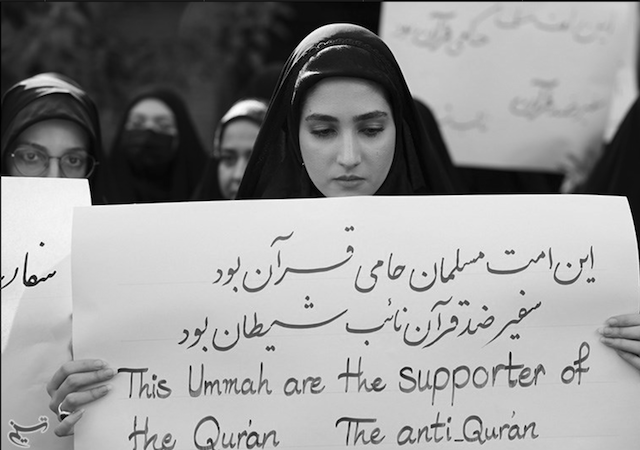 این امت مسلمان حامی قرآن بود
سفیر ضد قرآن نائب شیطان بود
This Ummah are the supporter of
the Qur'an The anti_Qur'an
سفار